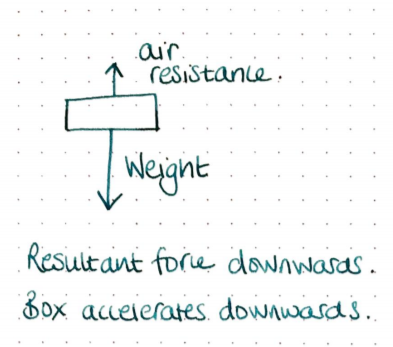 air
resistance.
Weight
Resultant force downwards.
Box accelerates downwards.